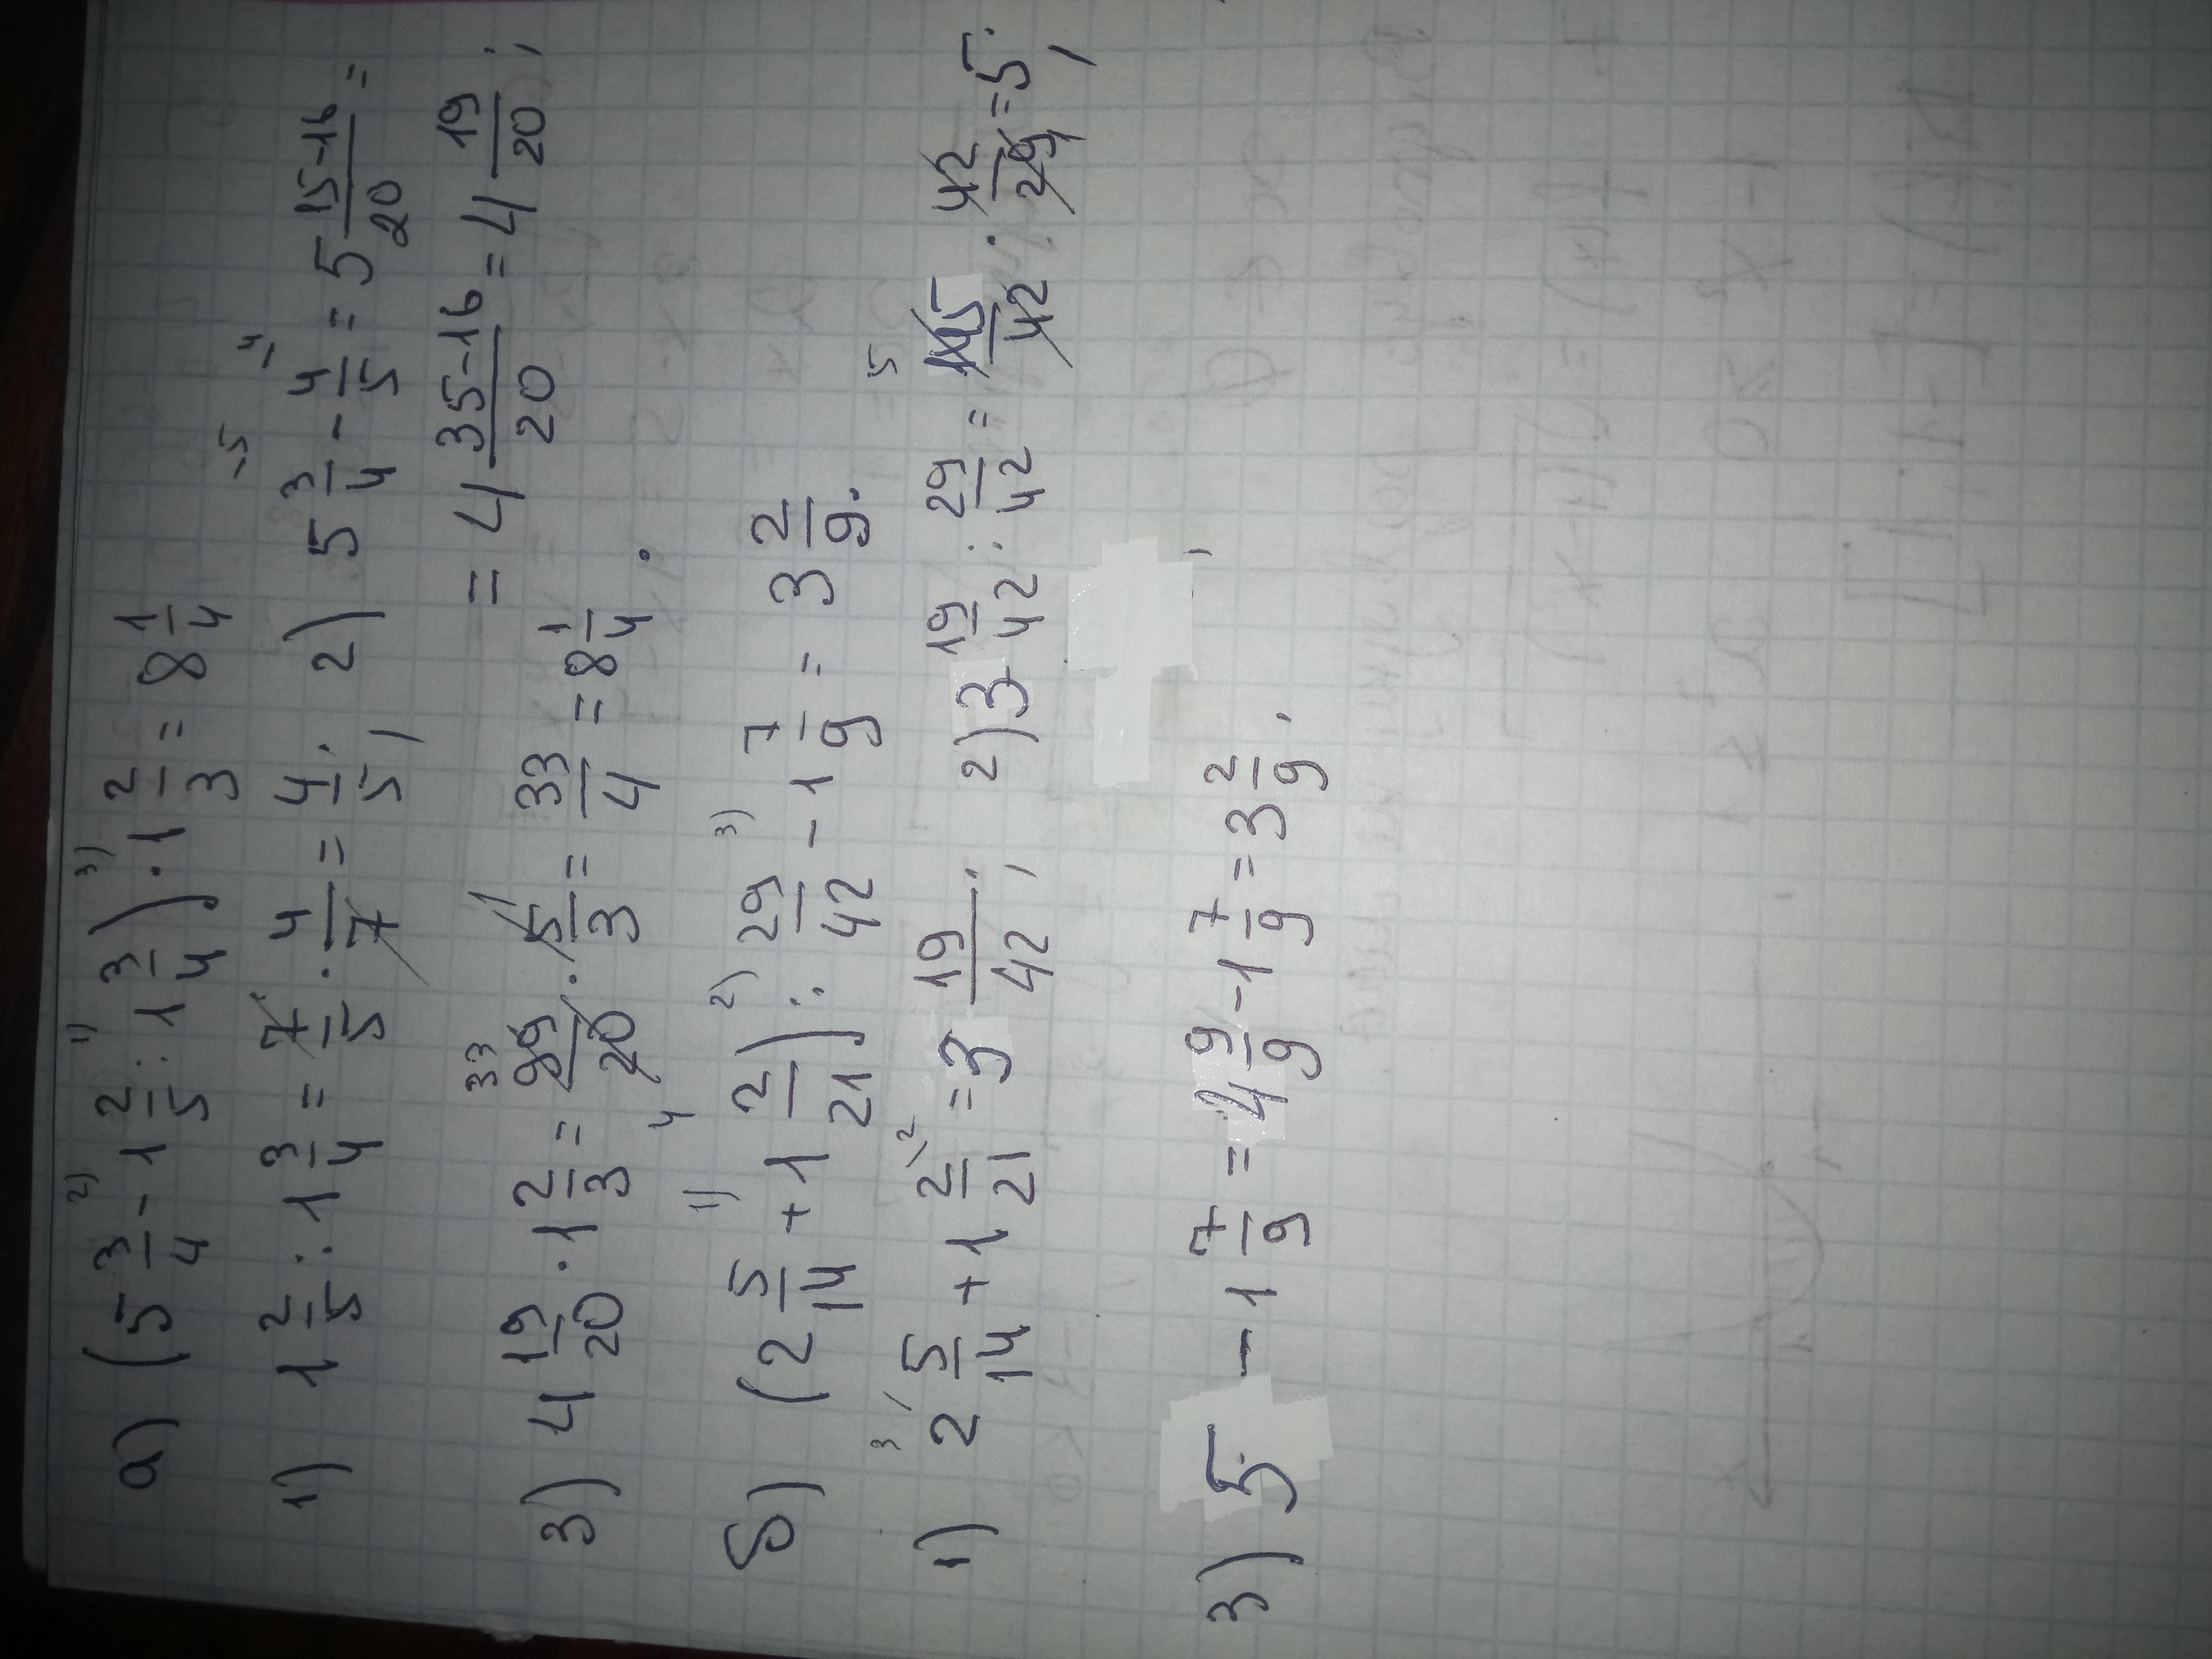 а) (5 3/4 - 1 2/5 : 1 3/4) · 1 2/3 = 8 1/4
1) 1 2/5 : 1 3/4 = 7/5 · 4/7 = 4/5; 2) 5 3/4 - 4/5 = 5 15-16/20 =
= 4 35-16/20 = 4 19/20;
3) 4 19/20 · 1 2/3 = 99/20 · 5/3 = 33/4 = 8 1/4.
б) (2 5/14 + 1 2/21) : 29/42 - 1 7/9 = 3 2/9.
1) 2 5/14 + 1 2/21 = 3 19/42; 2) 3 19/42 : 29/42 = 145/42 · 42/29 = 5;
3) 5 - 1 7/9 = 4 9/9 - 1 7/9 = 3 2/9.